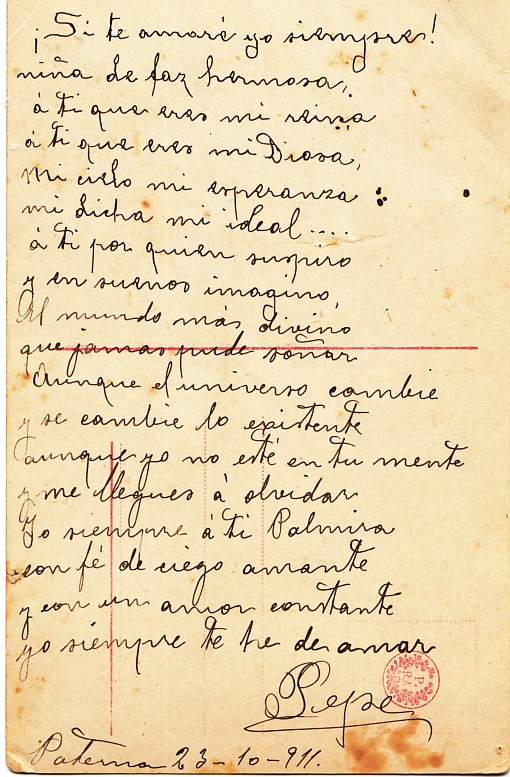 ¡Si te amaré yo siempre!
niña de faz hermosa,
á ti que eres mi reina
á ti que eres mi Diosa,
Mi cielo mi esperanza
mi dicha mi ideal....
á ti por quien suspiro
y en suenos imagino,
Al mundo más divino
que jamas pude soñar
Aunque el universo cambie
y se cambie lo existente
aunque yo no esté en tu mente
y me llegues á olvidar
Yo siempre á ti Palmira
con fé de ciego amante
y con un amor constante
yo siempre te he de amar
Pepe
Paterna 23-10-911.